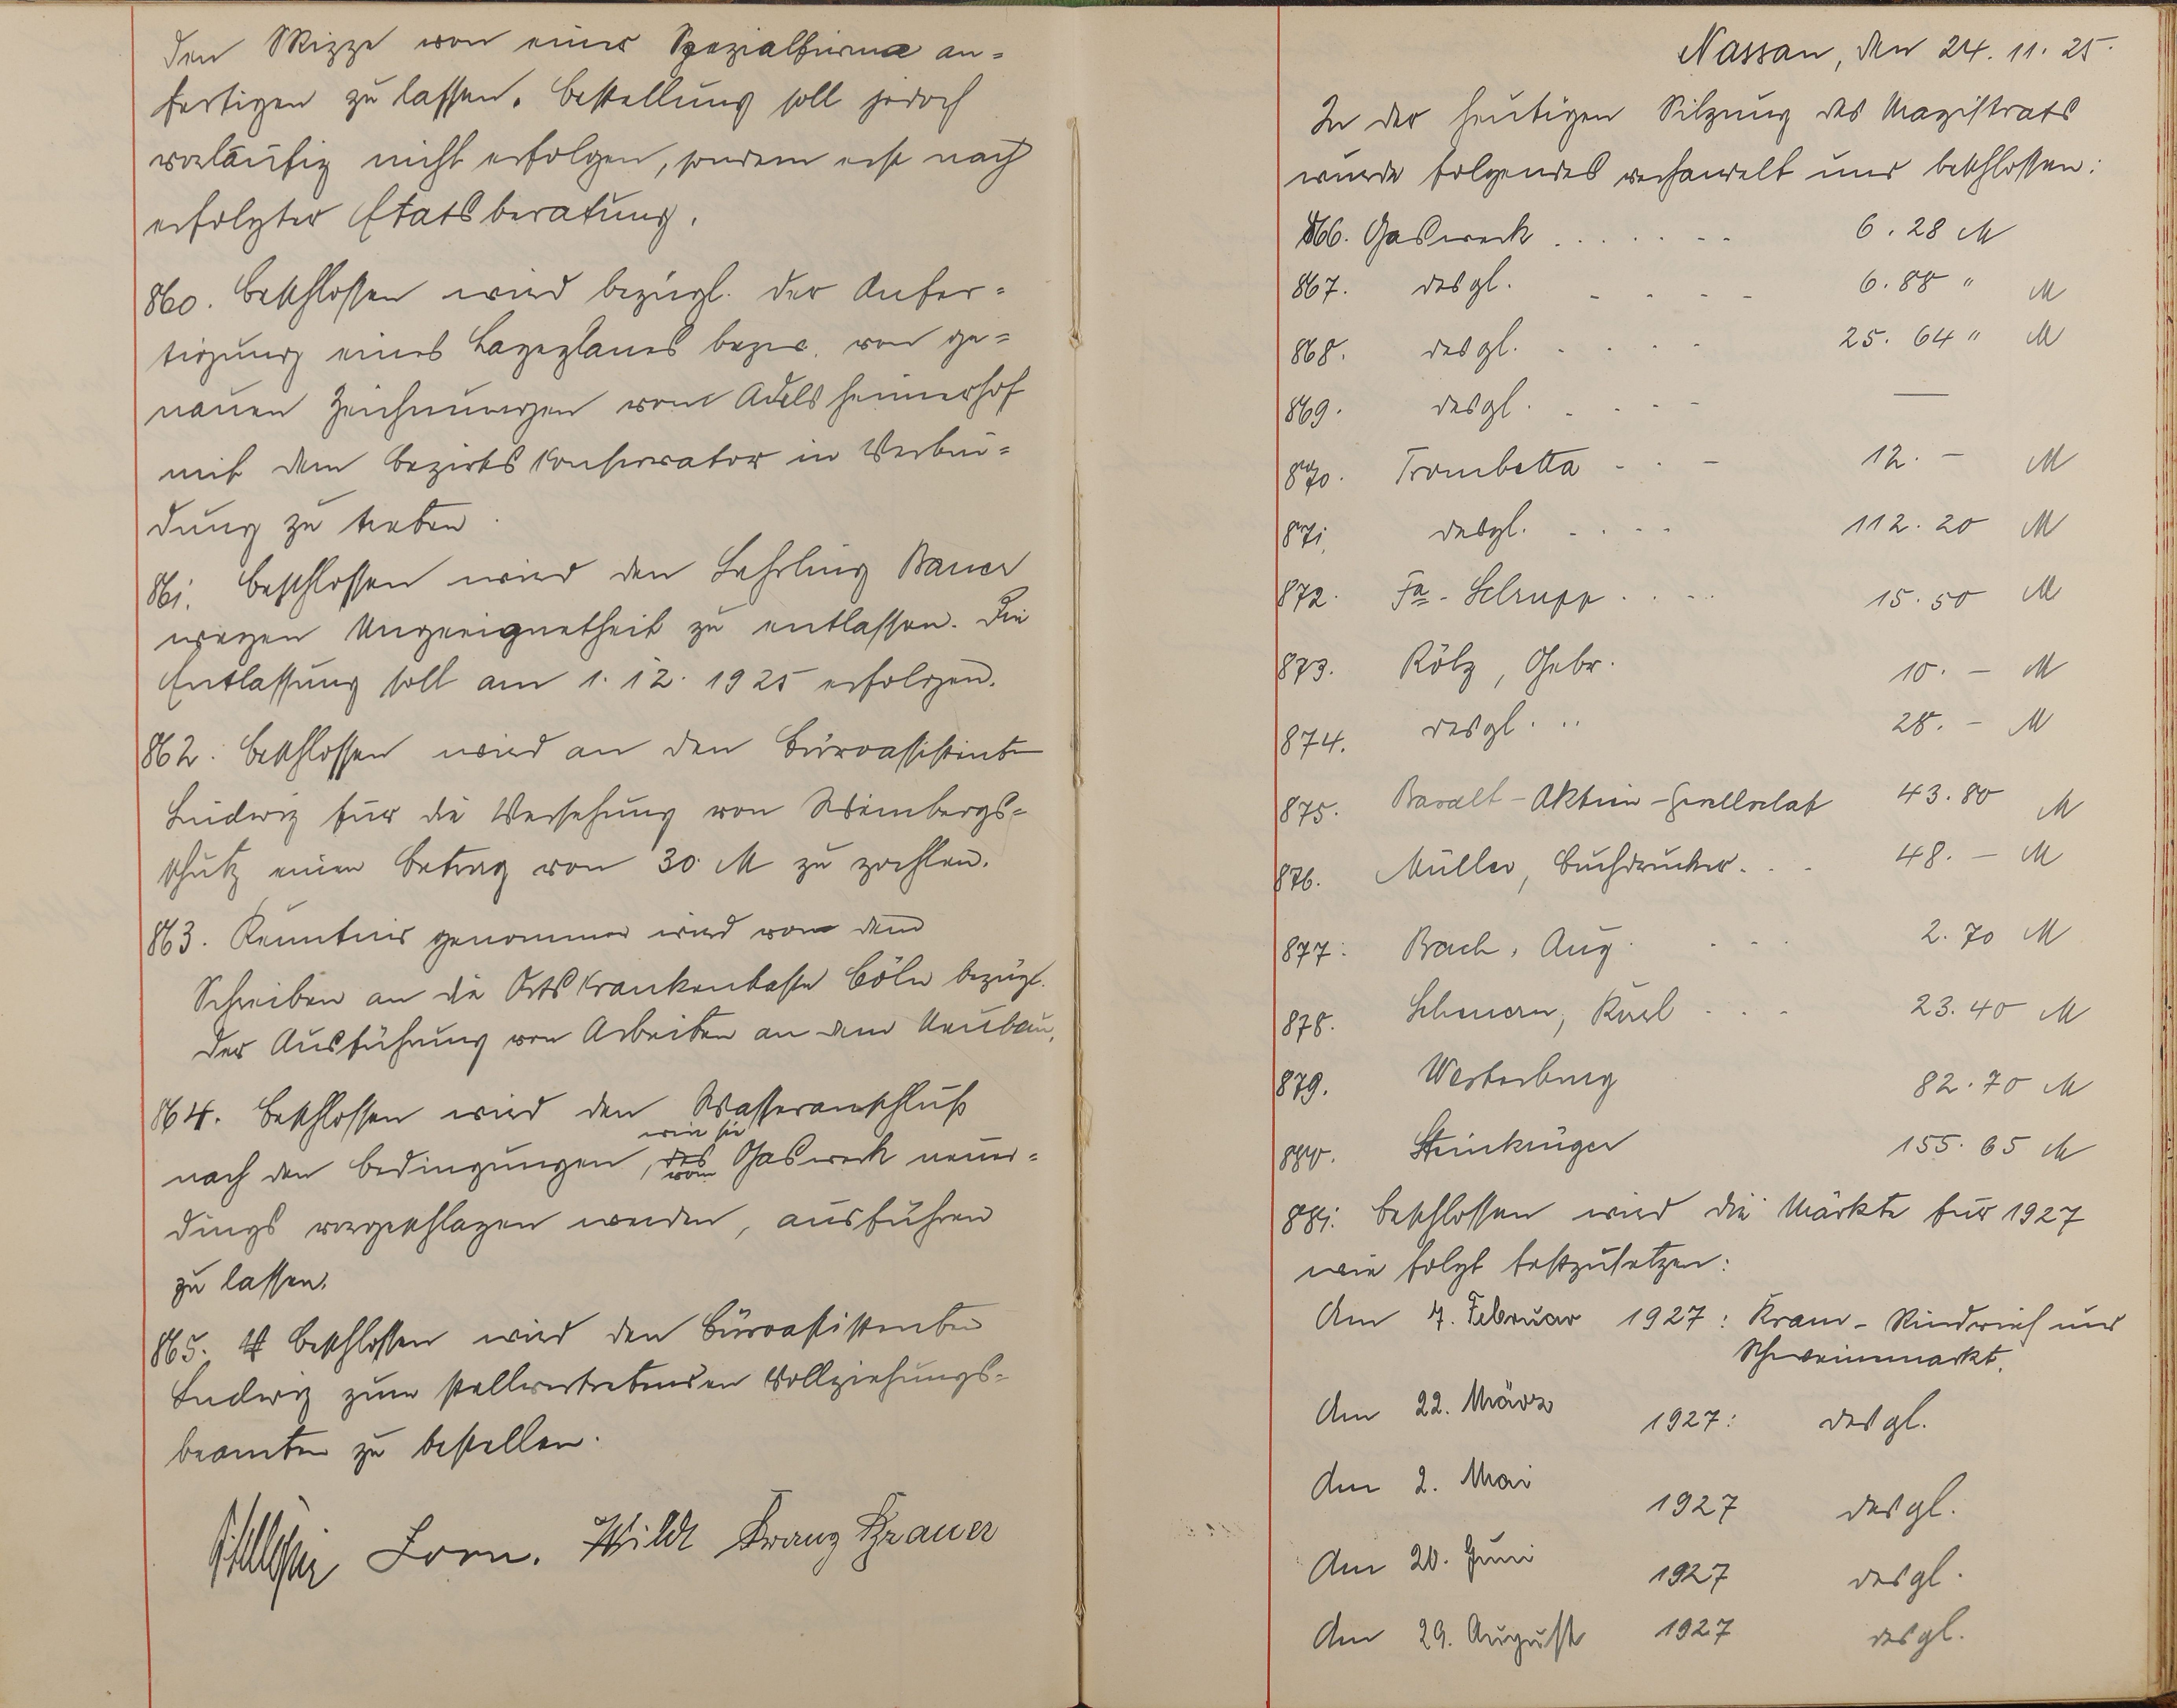 den Skizze von einer Spezialfirma an=
fertigen zu lassen. Bestellung soll jedoch
vorläufig nicht erfolgen, sondern erst nach
erfolgter Etatsberatung.
860. Beschlossen wird bezügl. der Anfer=
tigung eines Lageplanes bezw. von ge=
nauen Zeichnungen vom Adelsheimerhof
mit dem Bezirkskonservator in Verbin=
dung zu treten.
861. Beschlossen wird den Lehrling Bauer
wegen Ungeeignetheit zu entlassen. Die
Entlassung soll am 1. 12. 1925 erfolgen.
862. Beschlossen wird an den Büroassistenten
Ludwig für die Versehung von Weinbergs=
schutz einen Betrag von 30 M zu zahlen.
863. Kenntnis genommen wird von dem
Schreiben an die Ortskrankenkasse Cöln bezügl.
der Ausführung von Arbeiten an dem Neubau.
864. Beschlossen wird den Wasseranschluß
nach den Bedingungen, wie sie vom Gaswerk neuer=
dings vorgeschlagen werden, ausführen
zu lassen.
865. Beschlossen wird den Büroassistenten
Ludwig zum stellvertretenden Vollziehungs=
beamten zu bestellen.
Lorn. Wildt Franz Brauer
Nassau, den 24. 11. 25.
In der heutigen Sitzung des Magistrats
wurde folgendes verhandelt und beschlossen:
866. Gaswerk . . . . . . 6.28 M
867. desgl. - - - - 6.88 " M
868. desgl. . . . . 25.64 " M
869. desgl. . . - - —
870. Trombetta - - - 12. - M
871. desgl. . . . . 112.20 M
872. Fa. Schrupp . . . . 15.50 M
873. Kölz, Gebr. 10. - M
874. desgl. . . 28. - M
875. Basalt-Aktien-Gesellschaft 43.80 M
876. Müller, Buchdrucker. . . 48. - M
877. Bach, Aug. . . . 2.70 M
878. Karl . . . 23.40 M
879. Westerburg 82.70 M
880. Steinkrüger 155.65 M
881. Beschlossen wird die Märkte für 1927
wie folgt festzusetzen:
Am 7. Februar 1927: Kram- Rindvieh und
Schweinemarkt.
Am 22. März 1927: desgl.
Am 2. Mai 1927 desgl.
Am 20. Juni 1927 desgl.
Am 29. August 1927 desgl.